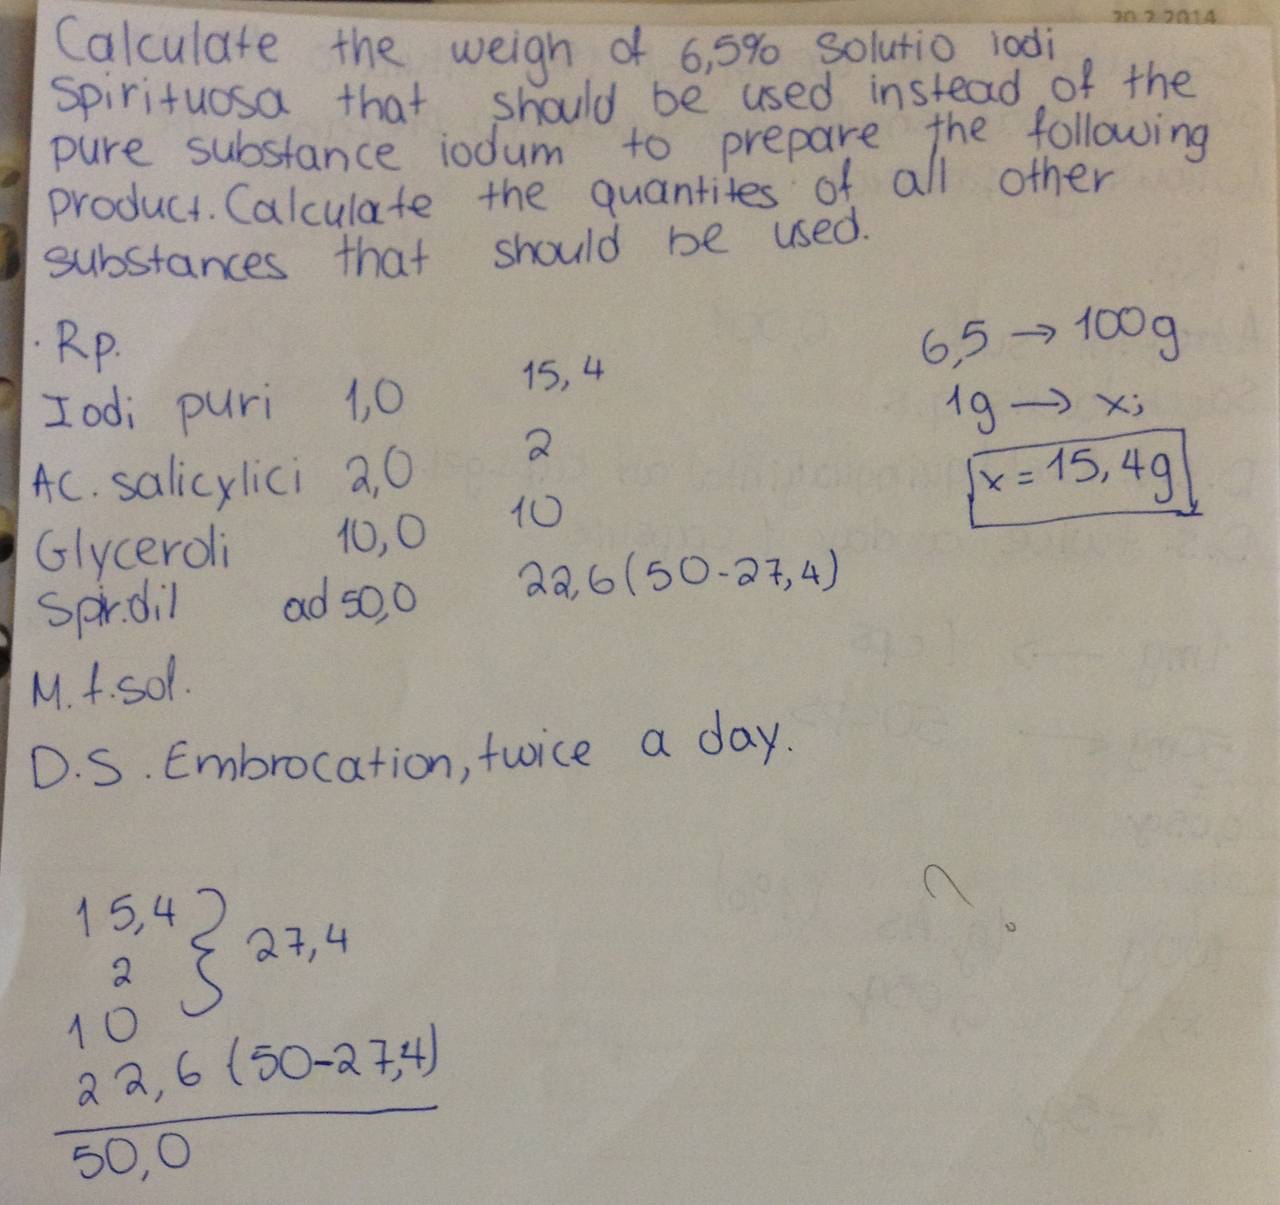 20.2.2014
Calculate the weigh of 6,5% Solutio iodi
Spirituosa that should be used instead of the
pure substance iodum to prepare the following
product. Calculate the quantites of all other
substances that should be used.
Rp.
Iodi puri 1,0 15,4
Ac. salicylici 2,0 2
Glyceroli 10,0 10
Spir.dil ad 50,0 22,6 (50-27,4)
6,5 → 100g
1g → x;
x = 15,4g
M.f.sol.
D.S. Embrocation, twice a day.
15,4 } 27,4
2
10
22,6 (50-27,4)
50,0
?